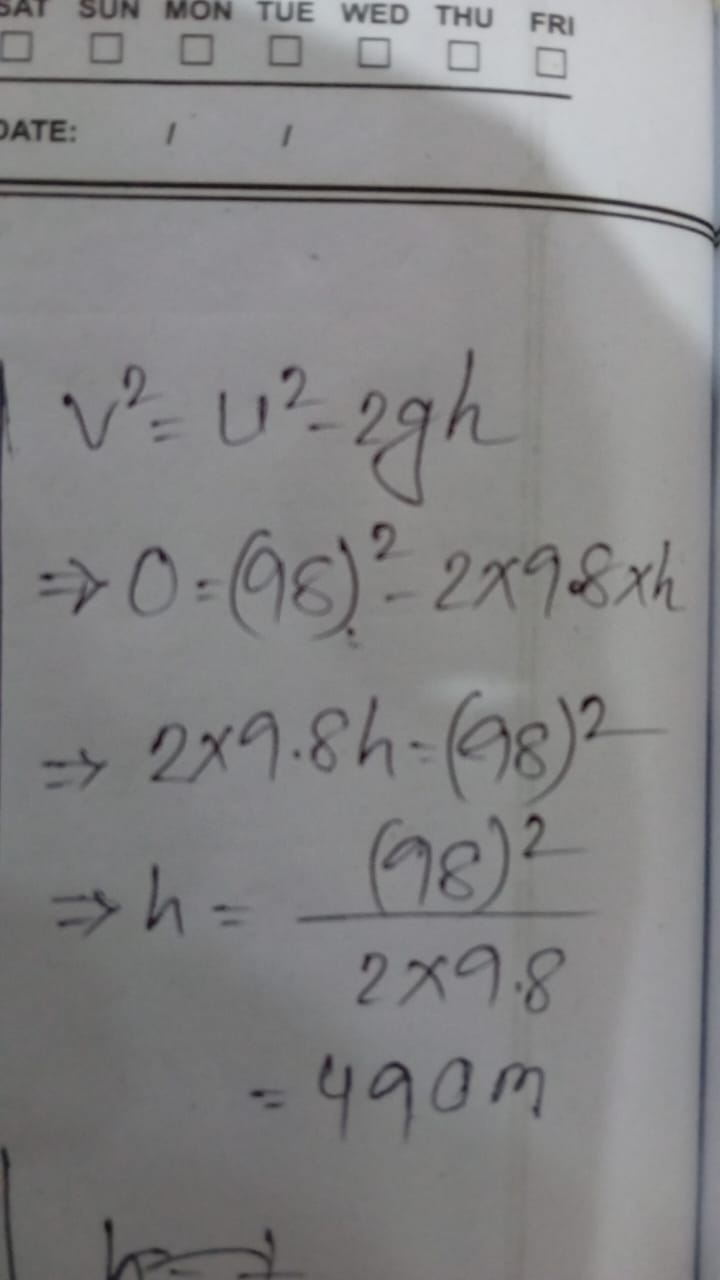 SAT SUN MON TUE WED THU FRI
DATE: / /
v²= u²- 2gh
⇒ 0 = (98)² - 2×9.8×h
⇒ 2×9.8h = (98)²
⇒ h = (98)²
2×9.8
= 490m